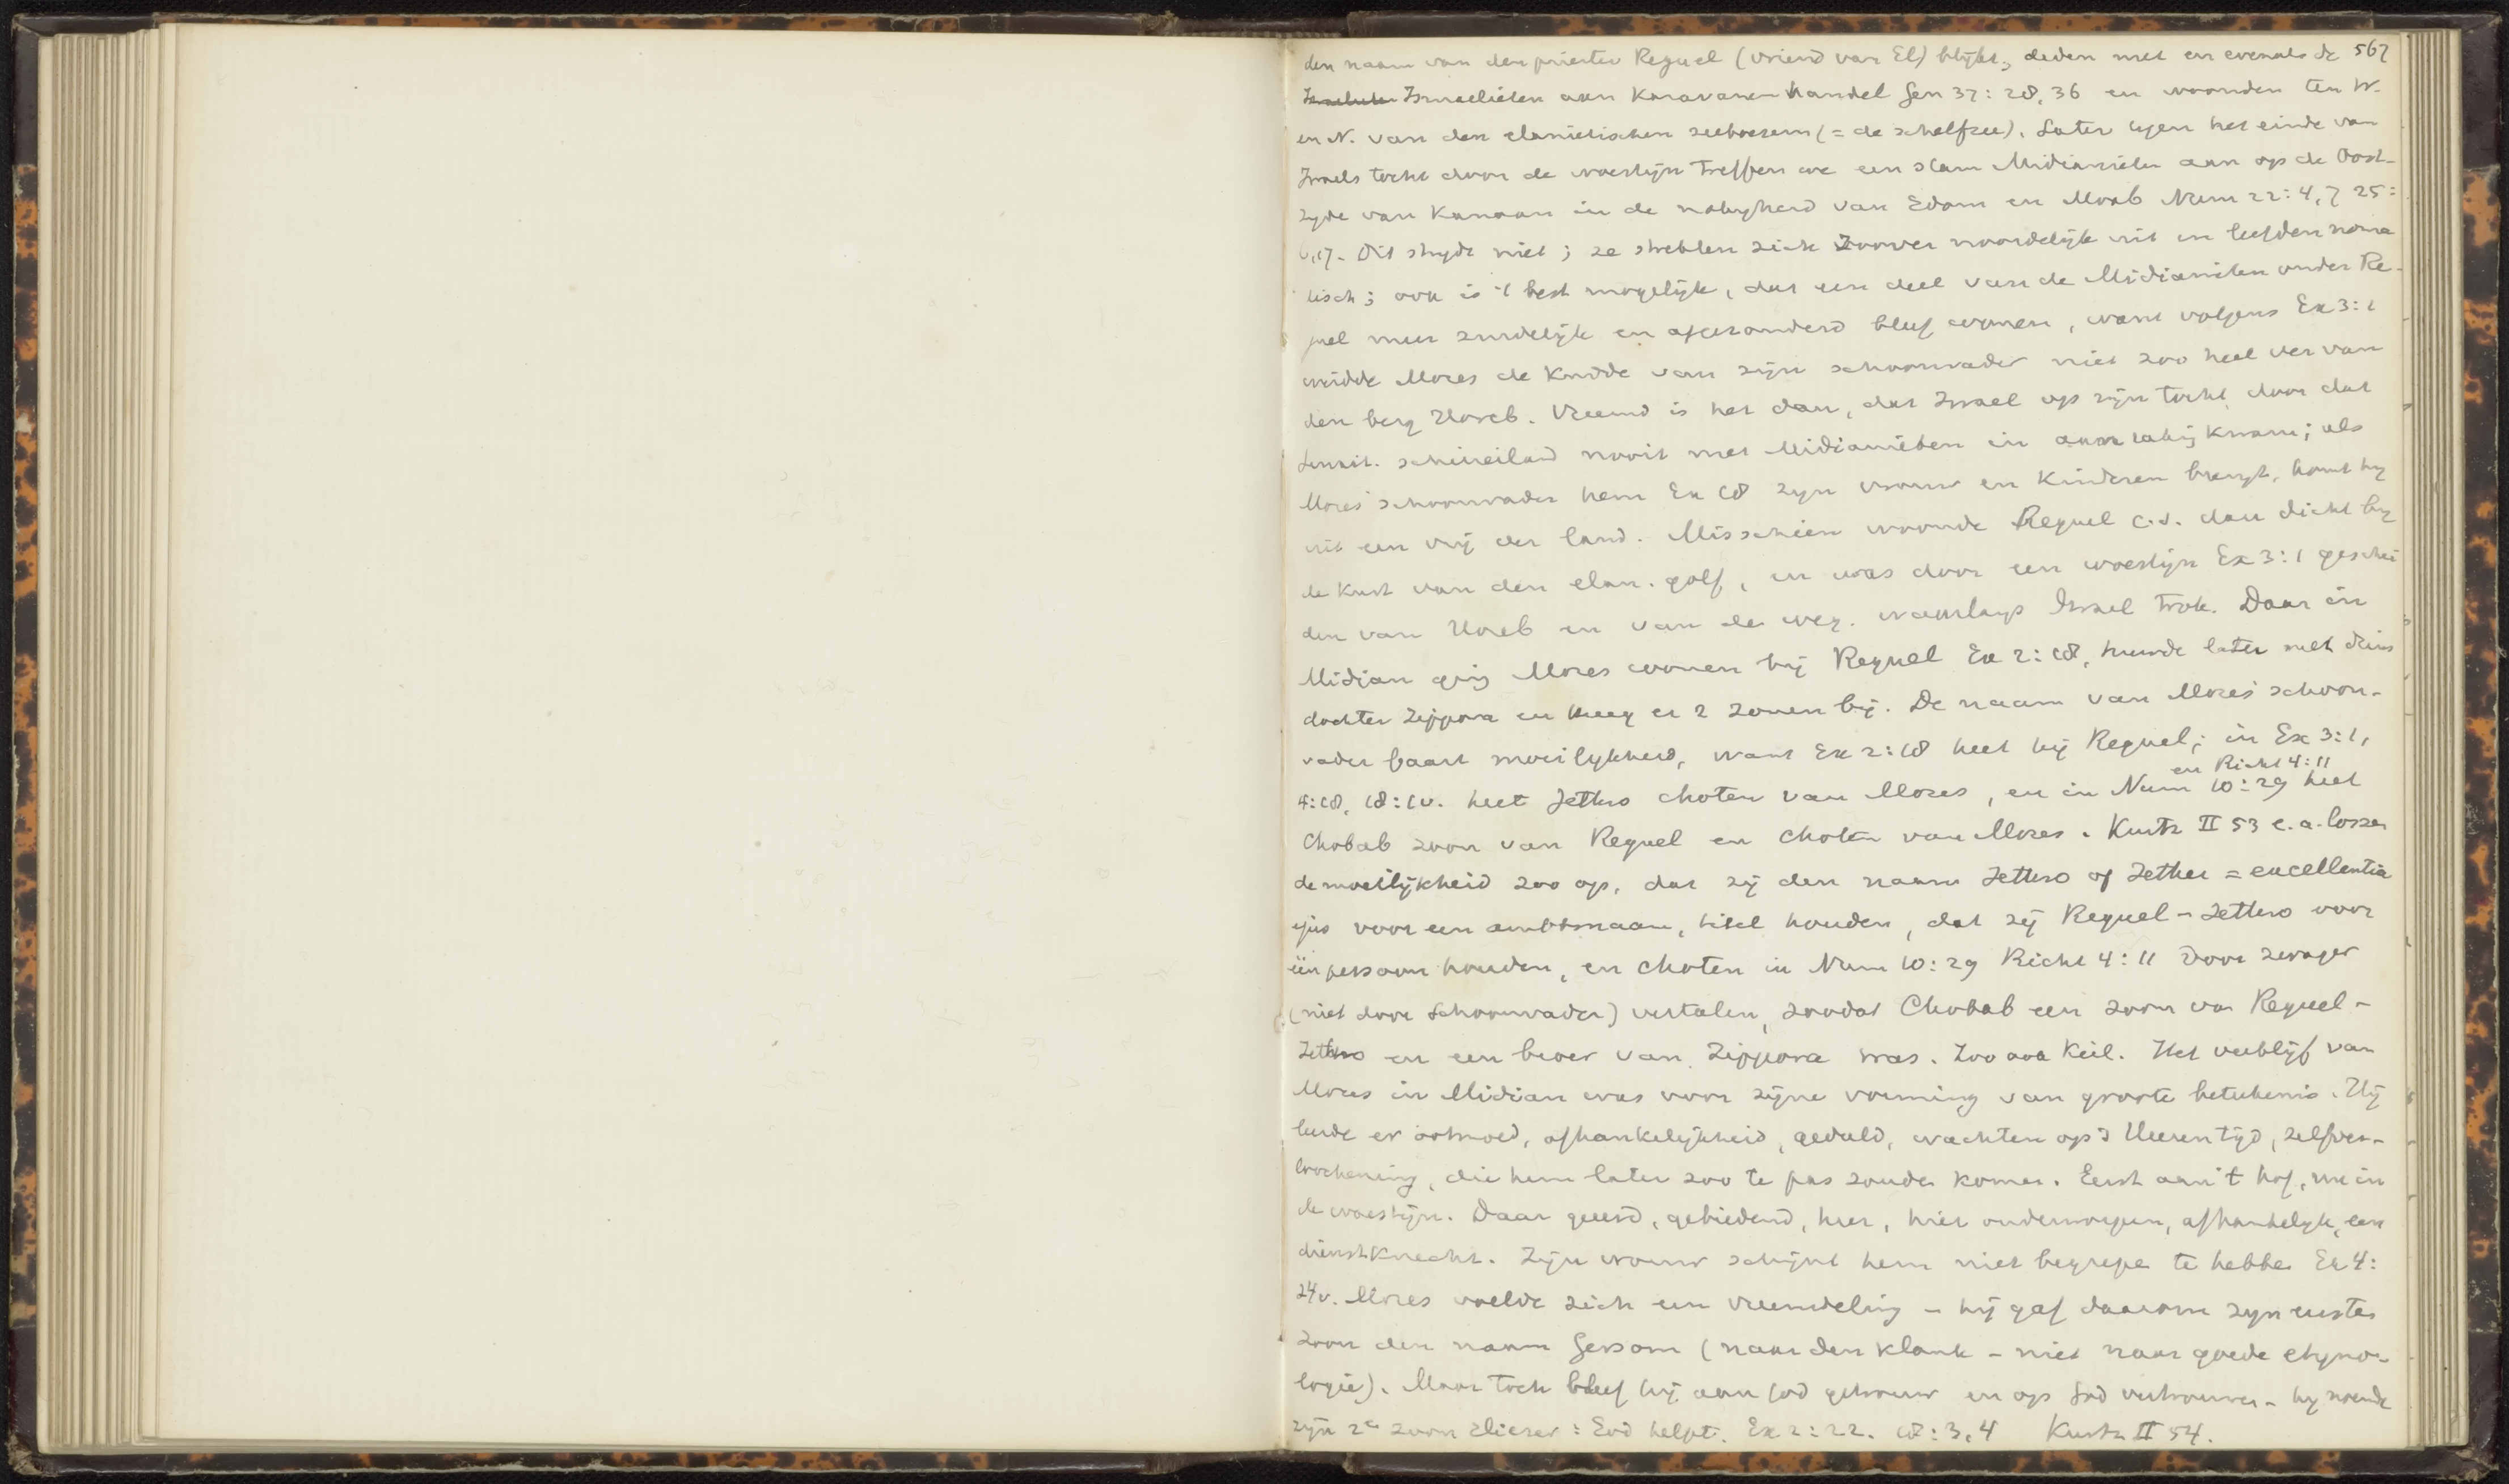 den naam van den priester Reguel (vriend van El) blijkt, deden met en evenals de 567
Ismaelieten aan Karavanenhandel Gen 37: 28, 36 en woonden ten W.
en N. van den elanietischen zeeboezem (= de schelfzee). Later tegen het einde van
Israels tocht door de woestijn treffen we een stam Midianieten aan op de Oost-
zyde van Kanaan in de nabyheid van Edom en Moab Num 22: 4, 7 25:
6, 17. Dit strydt niet; ze strekten zich zoover noordelijk uit en leefden noma
tisch; ook is 't best mogelijk, dat een deel van de Midianieten onder Re-
guel meer zuidelijk en afgezonderd bleef wonen, want volgens Ex 3: 1
weidde Mozes de Kudde van zijn schoonvader niet zoo heel ver van
den berg Horeb. Vreemd is het dan, dat Israel op zijn tocht door dat
Sinait. schiereiland nooit met Midianieten in aanraking kwam; als
Mozes' schoonvader hem Ex 18 zyn vrouw en Kinderen brengt, komt hy
uit een vrij ver land. Misschien woonde Reguel c.s. dan dicht by
de Kust van den elan. golf, en was door een woestijn Ex 3: 1 geschei
den van Horeb en van de weg. waarlangs Israel trok. Daar in
Midian ging Mozes wonen bij Reguel Ex 2: 18, huwde later met diens
dochter Zippora en kreeg er 2 zonen bij. De naam van Mozes' schoon-
vader baart moeilykheid, want Ex 2: 18 heet hij Reguel; in Ex 3: 1,
en Richt 4: 11
4: 18, 18: 1v. heet Jethro choten van Mozes, en in Num 10: 29 heet
Chobab zoon van Reguel en choten van Mozes. Kurtz II 53 e.a. lossen
de moeilijkheid zoo op, dat zij den naam Jethro of Jether = excellentia
ejus voor een ambtsnaam, titel houden, dat zij Reguel - Jethro voor
één persoon houden, en choten in Num 10: 29 Richt 4: 11 door zwager
(niet door schoonvader) vertalen, zoodat Chobab een zoon van Reguel -
Jethro en een broer van Zippora was. Zoo ook Keil. Het verblijf van
Mozes in Midian was voor zijne vorming van groote beteekenis. Hij
leerde er ootmoed, afhankelijkheid, geduld, wachten op 's Heeren tijd, zelfver-
loochening, die hem later zoo te pas zouden komen. Eerst aan 't hof, nu in
de woestijn. Daar geëerd, gebiedend, heer, hier onderworpen, afhankelyk, een
dienstknecht. Zijn vrouw schijnt hem niet begrepen te hebben Ex 4:
24v. Mozes voelde zich een vreemdeling - hij gaf daarom zyn eersten
zoon den naam Gersom (naar den klank - niet naar goede etymo-
logie). Maar toch bleef hij aan God getrouw en op God vertrouwen - hy noemde
zijn 2en zoon Eliezer: God helpt. Ex 2: 22. 18: 3, 4 Kurtz II 54.